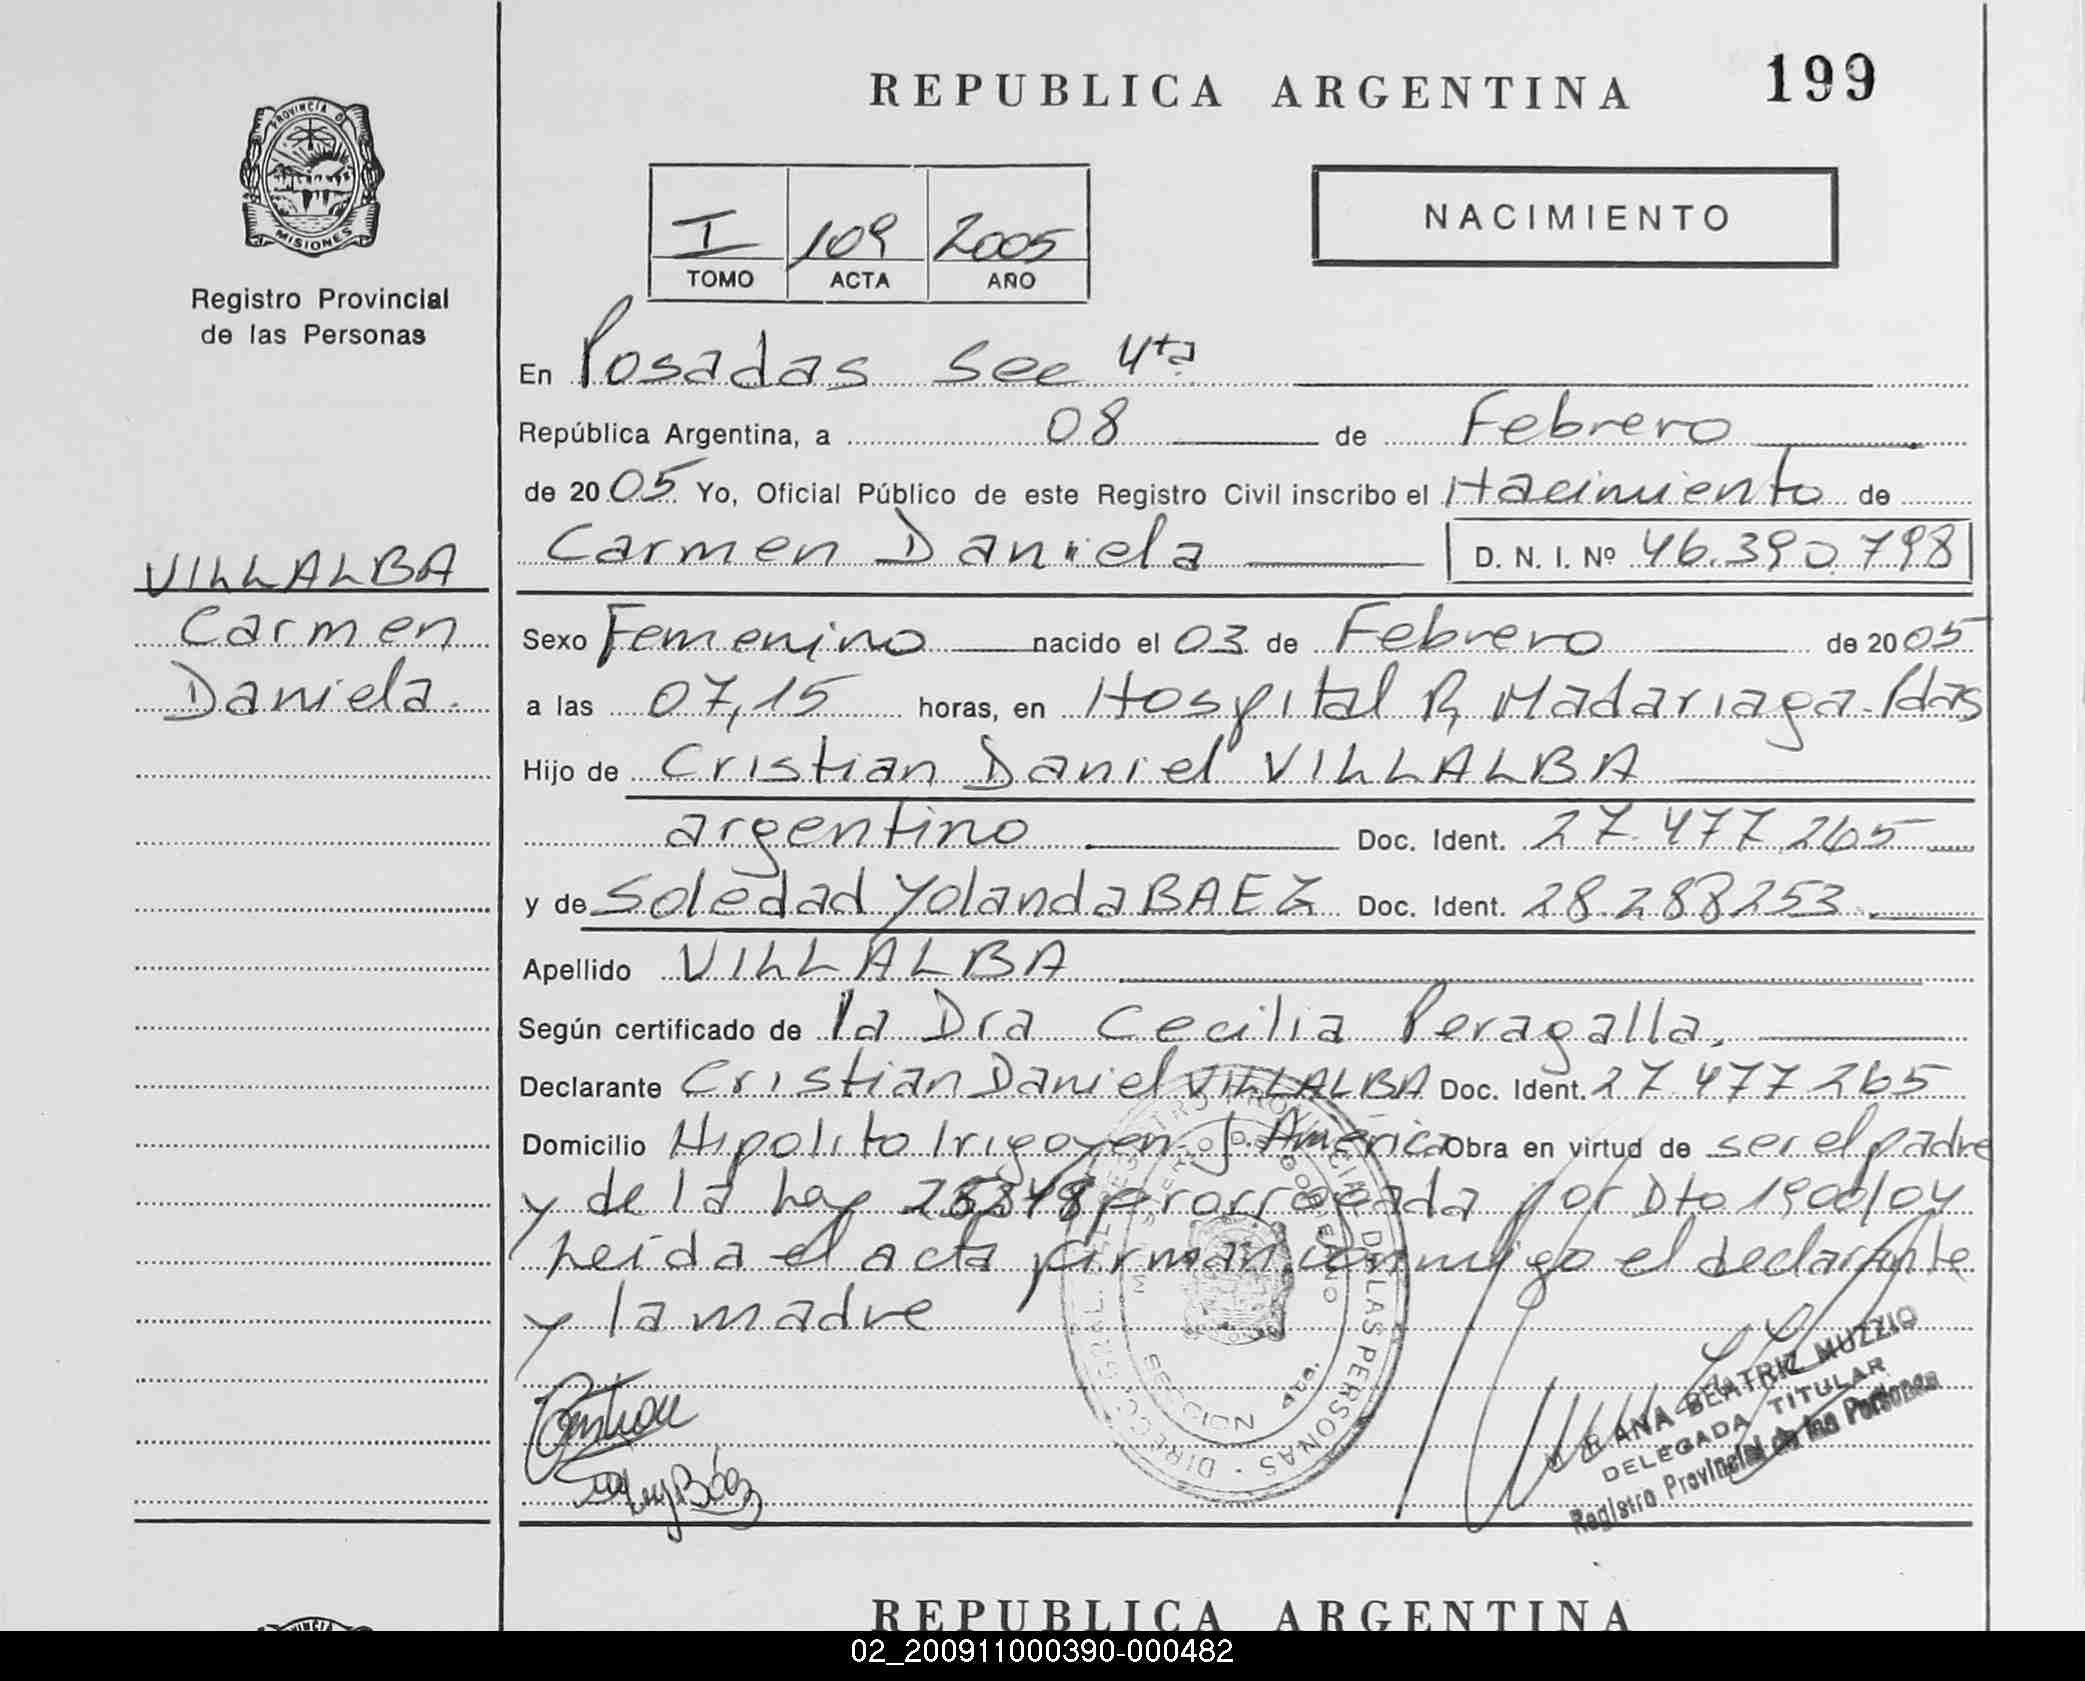 REPUBLICA ARGENTINA 199
PROVINCIA D
MISIONES
Registro Provincial
de las Personas
I 109 2005
TOMO ACTA AÑO
NACIMIENTO
En Posadas Sec 4ta
República Argentina, a 08 de Febrero
de 2005 Yo, Oficial Público de este Registro Civil inscribo el Nacimiento de
Carmen Daniela D. N. I. Nº 46.390.798
VILLALBA
Carmen
Daniela.
Sexo Femenino nacido el 03 de Febrero de 2005
a las 07,15 horas, en Hospital R, Madariaga-Pdas
Hijo de Cristian Daniel VILLALBA
argentino Doc. Ident. 27.477.265
y de Soledad Yolanda BAEZ Doc. Ident. 28.288253.
Apellido VILLALBA
Según certificado de la Dra Cecilia Peragalla.
Declarante Cristian Daniel VILLALBA Doc. Ident. 27.477.265
Domicilio Hipolito Irigoyen América Obra en virtud de ser el padre
y de la Ley prorrogada por Dto 1900/04
Leida el acta firman conmigo el declarante
y la madre
DIRECC. GRAL. REGISTRO PROVINCIAL DE LAS PERSONAS
SECCION 4ta.
Báez
ANA BEATRIZ MUZZIO
DELEGADA TITULAR
Registro Provincial de las Personas
REPUBLICA ARGENTINA
02_200911000390-000482